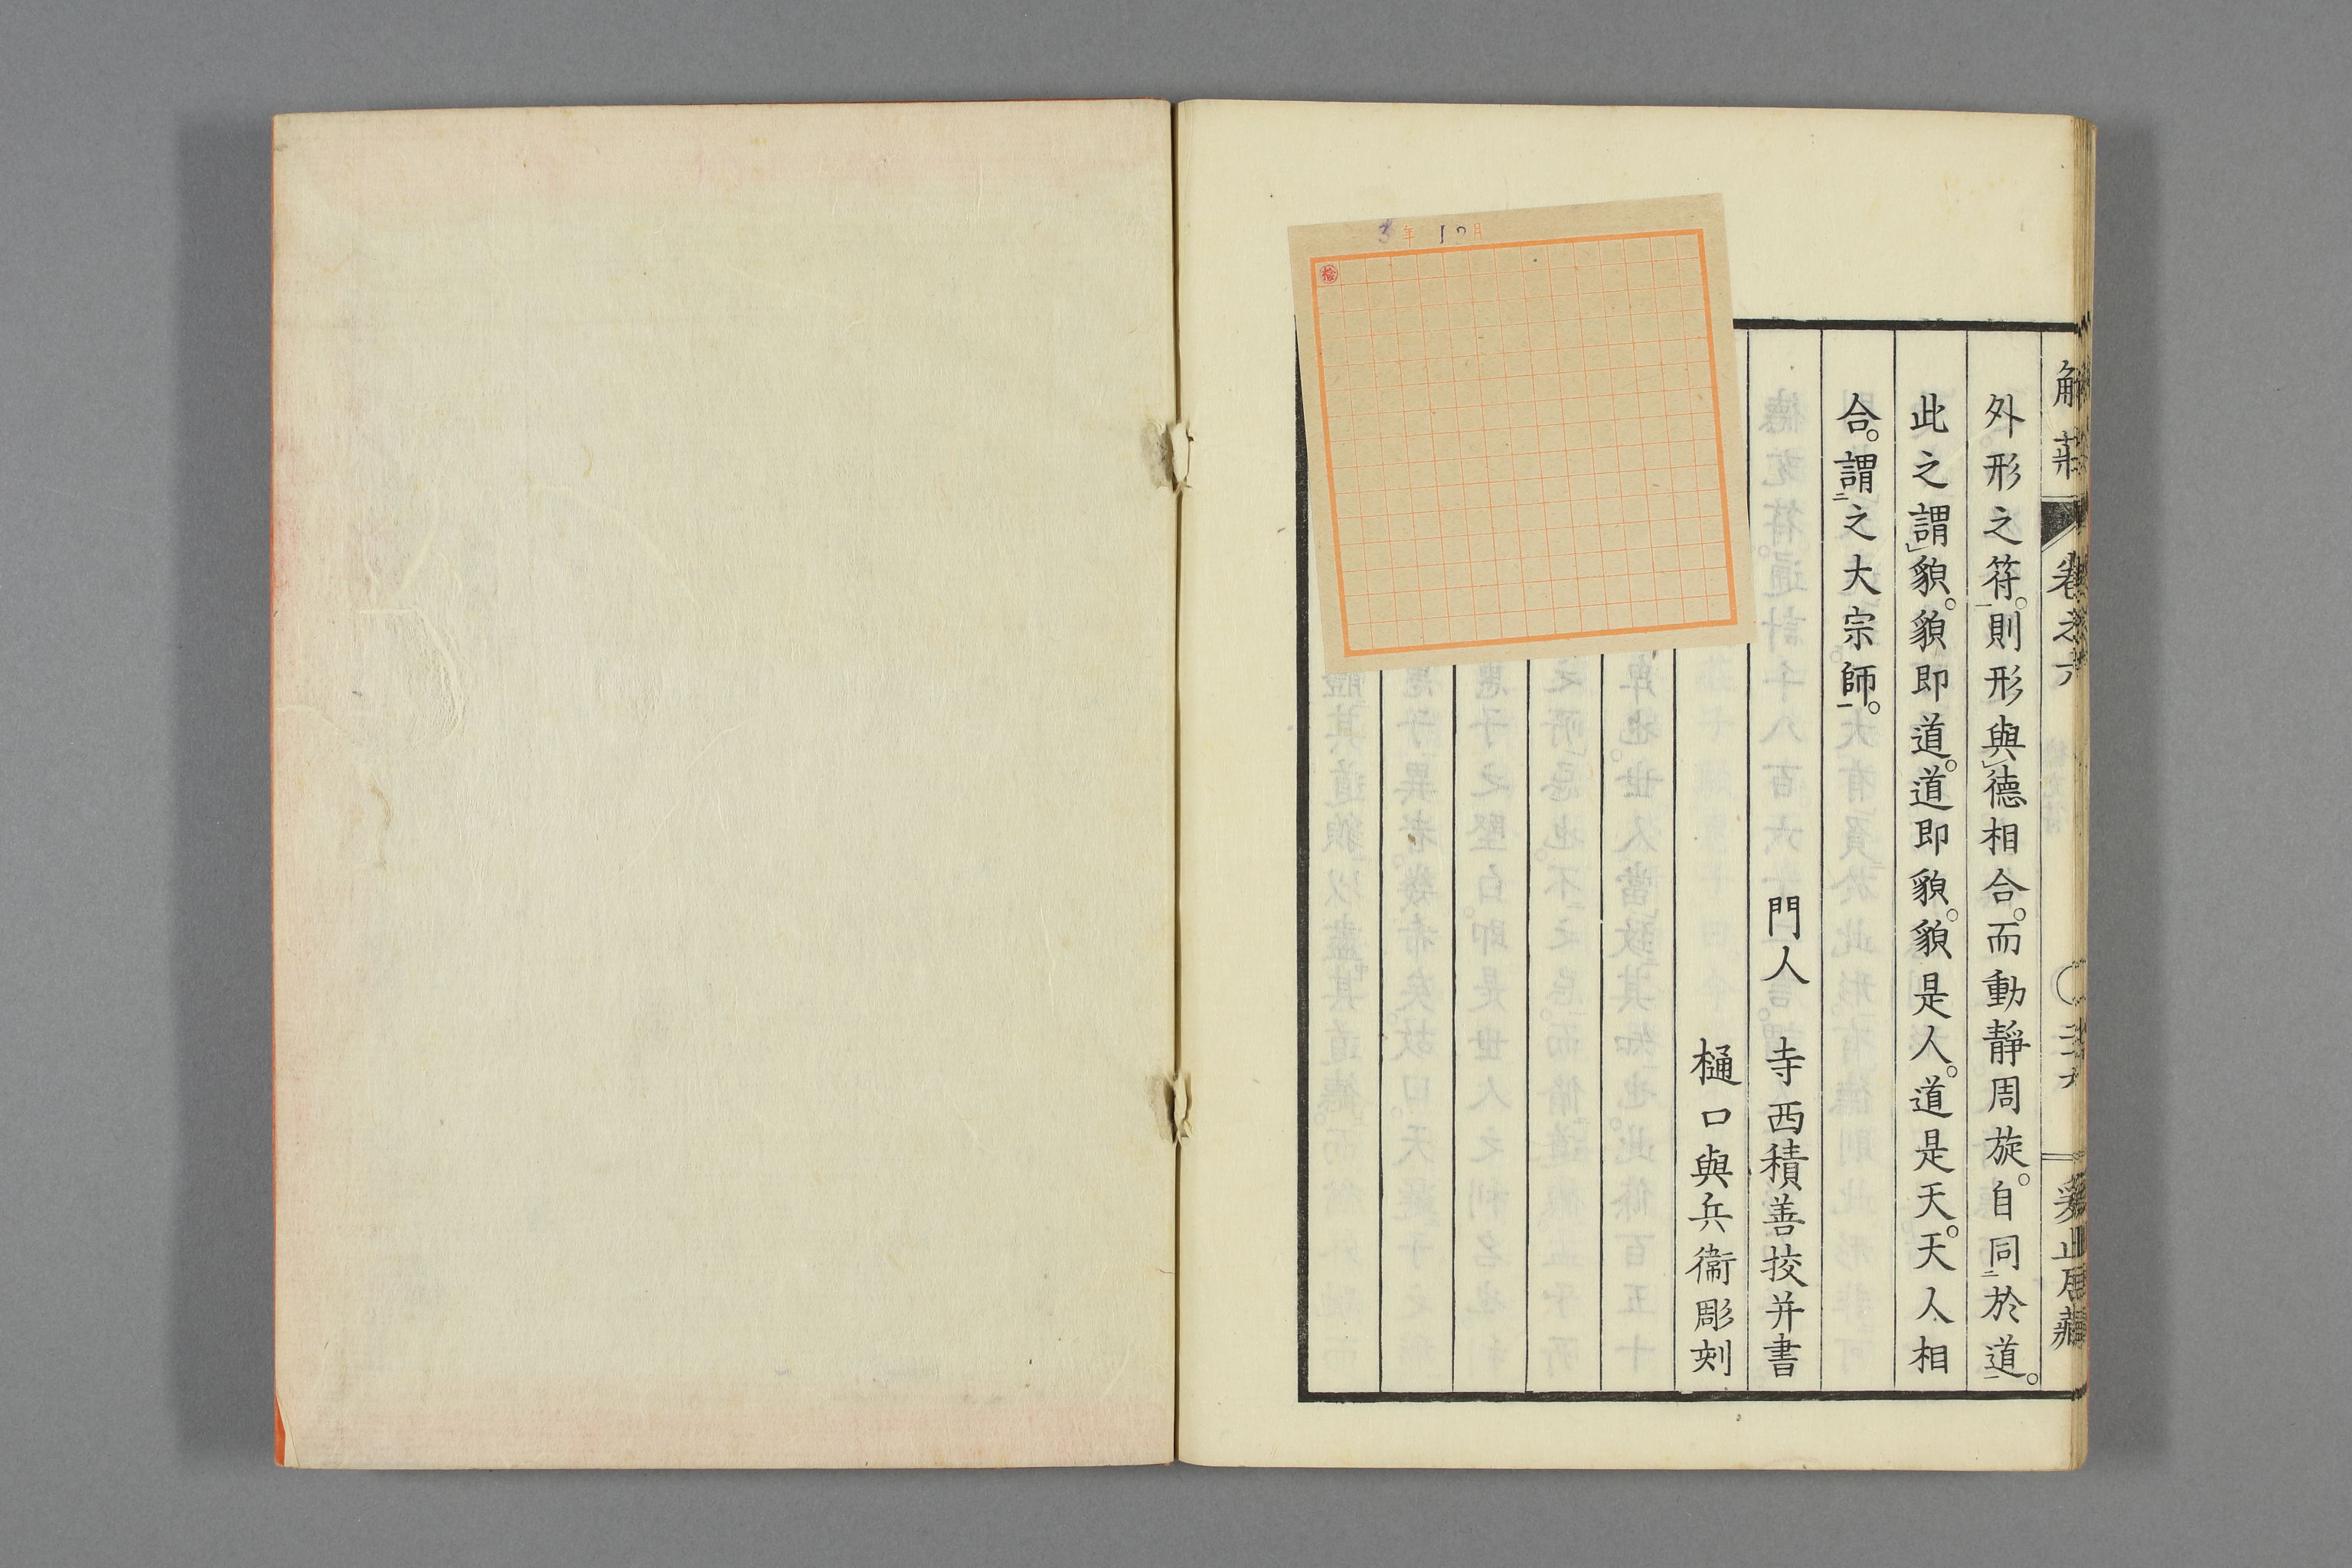 解莊 卷之六
外形之符。則形與德相合。而動靜周旋。自同於道。
此之謂貌。貌即道。道即貌。貌是人。道是天。天人相
合。謂之大宗師。
門人 寺西積善挍并書
樋口與兵衞彫刻
3年 10月